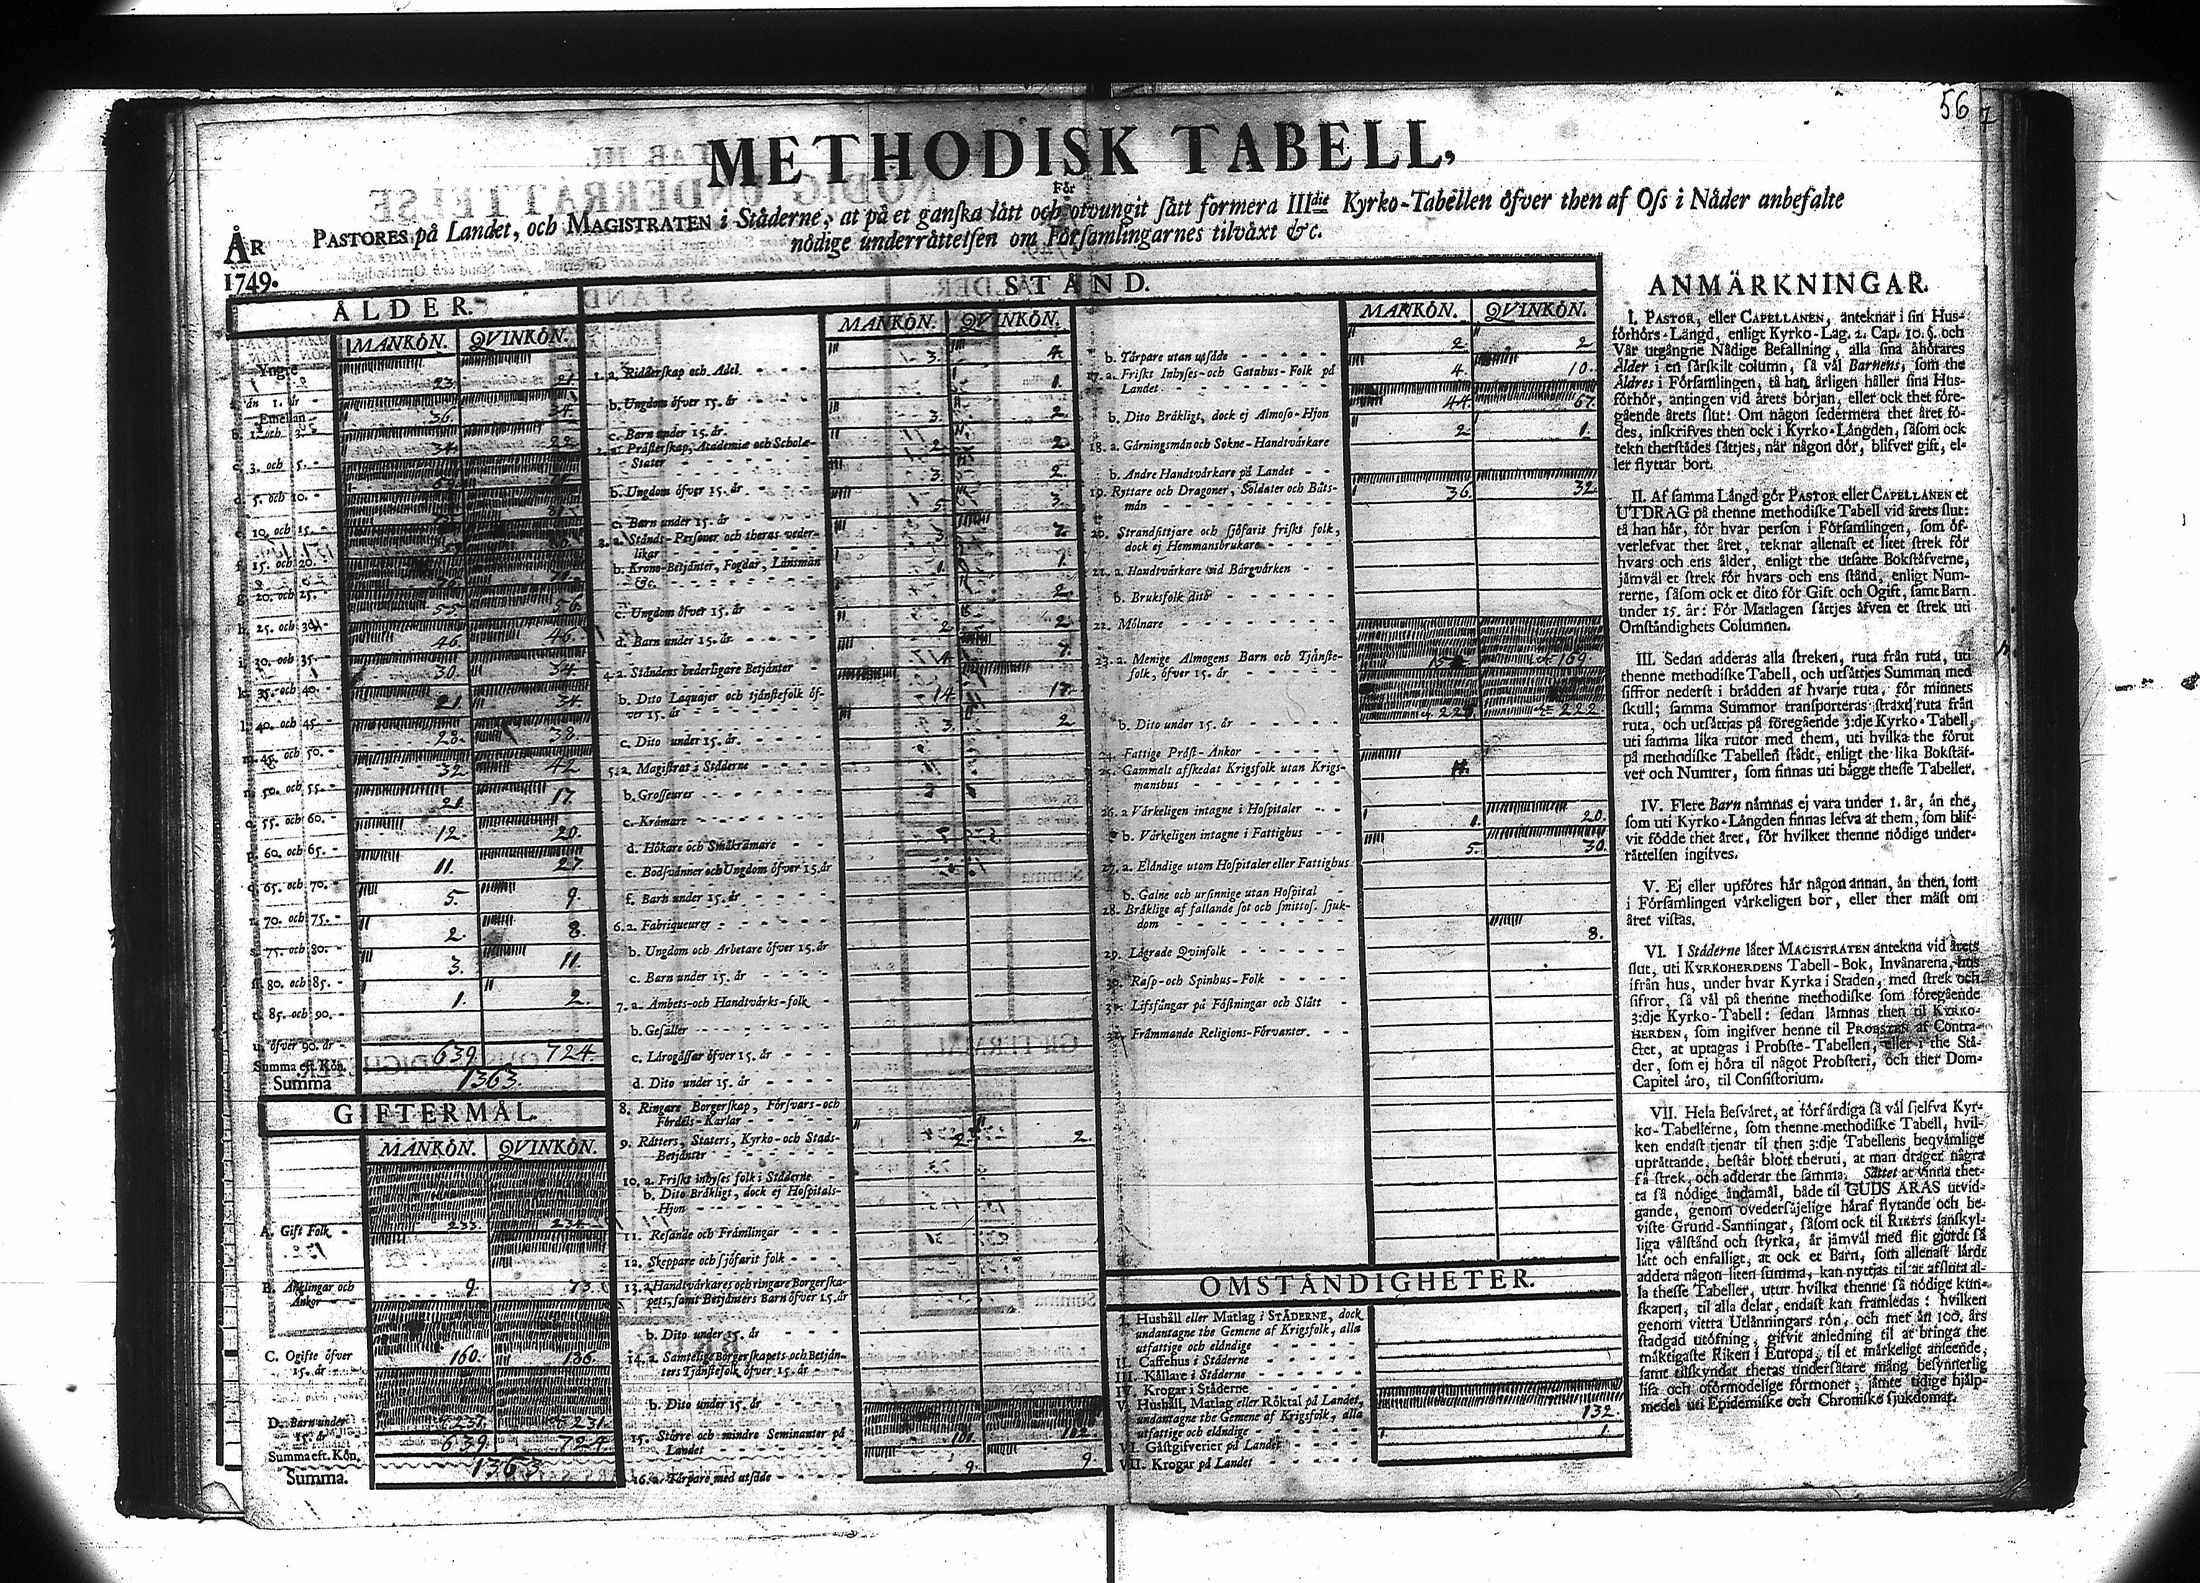 56
METHODISK TABELL,
För
PASTORES på Landet, och MAGISTRATEN i Ståderne, at på et ganſka lått och otvungit ſått formera IIIdie Kyrko-Tabellen öfver then af Oſs i Nåder anbefalte
nödige underråttelſen om Förſamlingarnes tilvåxt &c.
ÅR
1749.
ÅLDER.
MANKÖN. QVINKÖN.
Yngre
än 1. år - 23. 21.
Emellan
b. 1. och 3. - 36. 34.
c. 3. och 5. - 34. 22.
d. 5. och 10. -
e. 10. och 15. -
f. 15. och 20. -
g. 20. och 25. - 55. 56.
h. 25. och 30. - 46. 46.
i. 30. och 35. - 30. 34.
k. 35. och 40. - 21. 34.
l. 40. och 45. - 28. 38.
m. 45. och 50. - 32. 42
n. 50. och 55. - 21. 17.
o. 55. och 60. - 12. 20.
p. 60. och 65. - 11. 27.
q. 65. och 70. - 5. 9.
r. 70. och 75. - 2. 8.
s. 75. och 80. - 3. 11.
ſ. 80. och 85. - 1. 2.
t. 85. och 90. -
u. öfver 90. år -
Summa eft. Kön. 639. 724.
Summa 1363.
GIFTERMÅL.
MANKÖN. QVINKÖN.
A. Gift Folk - 233. 234.
B. Änklingar och
Änkor - 9. 73.
C. Ogifte öfver
15. år - 160. 186.
D. Barn under
15. år 231. 231.
Summa eft. Kön. 639. 724.
Summa. 1363.
STÅND.
MANKÖN. QVINKÖN.
1. a. Ridderſkap och Adel - 3. 4.
b. Ungdom öfver 15. år - 1.
c. Barn under 15. år. 3. 2.
2. a. Pråſterſkap, Academiæ och Scholæ-
Stater - 2. 2.
b. Ungdom öfver 15. år - 3. 2.
c. Barn under 15. år - 5. 3.
3. a. Stånds-Perſoner och theras veder-
likar - 7.
b. Krono-Betjänter, Fogdar, Länsmän
&c. 1. 1.
c. Ungdom öfver 15. år - 2.
d. Barn under 15. år - 2. 2.
4. a. Ståndens hederligare Betjänter 4.
b. Dito Laquajer och tjänſtefolk öf-
ver 15. år - 14. 17.
c. Dito under 15. år. - 3. 2
5. a. Magiſtrat i Städerne
b. Groſſeurer
c. Krämare
d. Hökare och Småkrämare
e. Bodſvänner och Ungdom öfver 15. år
f. Barn under 15. år
6. a. Fabriqueurer
b. Ungdom och Arbetare öfver 15. år
c. Barn under 15. år
7. a. Ämbets-och Handtvärks-folk
b. Geſäller
c. Lärogåſſar öfver 15. år
d. Dito under 15. år
8. Ringare Borgerſkap, Förſvars-och
Fördels-Karlar
9. Rätters, Staters, Kyrko-och Stads-
Betjänter - 2. 2.
10. a. Friſkt inhyſes folk i Städerne
b. Dito Bräkligt, dock ej Hoſpitals-
Hjon
11. Reſande och Främlingar
12. Skeppare och ſjöfarit folk
13. a. Handtvärkares och ringare Borgerſka-
pets, ſamt Betjänters Barn öfver 15. år
b. Dito under 15. år
14. a. Samtelige Borgerſkapets och Betjän-
ters Tjänſtefolk öfver 15. år
b. Dito under 15. år
15. Större och mindre Seminanter på
Landet - 101. 102.
16. a. Tårpare med utſäde - 9. 9.
MANKÖN. QVINKÖN.
b. Tårpare utan utſäde - 2. 2
17. a. Friſkt Inhyſes-och Gatuhus-Folk på
Landet - 4. 10.
b. Dito Bräkligt, dock ej Almoſo-Hjon 44. 67.
18. a. Gärningsmän och Sokne-Handtvärkare 2. 1.
b. Andre Handtvärkare på Landet
19. Ryttare och Dragoner, Soldater och Båts-
män - 36. 32.
20. Strandſittjare och ſjöfarit friſkt folk,
dock ej Hemmansbrukare
21. a. Handtvärkare vid Bärgvärken
b. Bruksfolk dito
22. Mölnare
23. a. Menige Almogens Barn och Tjänſte-
folk, öfver 15. år - 169.
b. Dito under 15. år - 222.
24. Fattige Präſt-Änkor
25. Gammalt afſkedat Krigsfolk utan Krigs-
manshus
26. a Värkeligen intagne i Hoſpitaler - 1. 20.
b. Värkeligen intagne i Fattighus - 5. 30.
27. a. Eländige utom Hoſpitaler eller Fattighus
b. Galne och urſinnige utan Hoſpital
28. Bräklige af fallande ſot och ſmittoſ. ſjuk-
dom - 8.
29. Lägrade Qvinfolk
30. Raſp-och Spinhus-Folk
31. Lifsfångar på Fäſtningar och Slått
32. Främmande Religions-Förvanter.
OMSTÅNDIGHETER.
I. Hushåll eller Matlag i STÄDERNE, dock
undantagne the Gemene af Krigsfolk, alla
utfattige och eländige
II. Caffehus i Städerne
III. Källare i Städerne
IV. Krogar i Städerne
V. Hushåll, Matlag eller Röktal på Landet,
undantagne the Gemene af Krigsfolk, alla
utfattige och eländige - 132.
VI. Gäſtgifverier på Landet - 1.
VII. Krogar på Landet
ANMÄRKNINGAR.
I. PASTOR, eller CAPELLANEN, anteknar i ſin Hus-
förhörs-Längd, enligt Kyrko-Lag. 2. Cap. 10. §. och
Vår utgångne Nådige Befallning, alla ſina åhörares
Ålder i en ſärſkilt column, ſå väl Barnens, ſom the
Äldres i Förſamlingen, tå han årligen håller ſina Hus-
förhör, antingen vid årets början, eller ock thet före-
gående årets ſlut: Om någon ſedermera thet året fö-
des, inſkrifves then ock i Kyrko-Längden, ſåſom ock
tekn therſtädes ſättjes, när någon dör, blifver gift, el-
ler flyttar bort.
II. Af ſamma Längd gör PASTOR eller CAPELLANEN et
UTDRAG på thenne methodiſke Tabell vid årets ſlut:
tå han här, för hvar perſon i Förſamlingen, ſom öf-
verlefvat thet året, teknar allenaſt et litet ſtrek för
hvars och ens ålder, enligt the utſatte Bokſtäfverne,
jämväl et ſtrek för hvars och ens ſtånd, enligt Num-
rerne, ſåſom ock et dito för Gift och Ogift, ſamt Barn
under 15. år: För Matlagen ſättjes äfven et ſtrek uti
Omſtändighets Columnen.
III. Sedan adderas alla ſtreken, ruta från ruta, uti
thenne methodiſke Tabell, och utſättjes Summan med
ſiffror nederſt i brädden af hvarje ruta, för minnets
ſkull; ſamma Summor transporteras ſtraxt ruta från
ruta, och utſättjas på föregående 3:dje Kyrko-Tabell,
uti ſamma lika rutor med them, uti hvilka the förut
på methodiſke Tabellen ſtådt, enligt the lika Bokſtäf-
ver och Numrer, ſom finnas uti bägge theſſe Tabeller.
IV. Flere Barn nämnas ej vara under 1. år, än the,
ſom uti Kyrko-Längden finnas lefva af them, ſom blif-
vit födde thet året, för hvilket thenne nödige under-
rättelſen ingifves.
V. Ej eller upföres här någon annan, än then, ſom
i Förſamlingen värkeligen bor, eller ther mäſt om
året viſtas.
VI. I Städerne låter MAGISTRATEN antekna vid årets
ſlut, uti KYRKOHERDENS Tabell-Bok, Invånarena, hus
ifrån hus, under hvar Kyrka i Staden, med ſtrek och
ſifror, ſå väl på thenne methodiſke ſom föregående
3:dje Kyrko-Tabell: ſedan lämnas then til KYRKO-
HERDEN, ſom ingifver henne til PROBSTEN af Contra-
ctet, at uptagas i Probſte-Tabellen, eller i the Stä-
der, ſom ej höra til något Probſteri, och ther Dom-
Capitel äro, til Conſiſtorium.
VII. Hela Beſväret, at förfärdiga ſå väl ſjelfva Kyr-
ko-Tabellerne, ſom thenne methodiſke Tabell, hvil-
ken endaſt tjenar til then 3:dje Tabellens beqvämlige
uprättande, beſtår blott theruti, at man drager några
få ſtrek, och adderar the ſamma. Sättet at vinna thet-
ta ſå nödige ändamål, både til GUDS ÄRAS utvid-
gande, genom ovederſäjelige häraf flytande och be-
viſte Grund-Sanningar, ſåſom ock til RIKETS ſanſkyl-
liga välſtånd och ſtyrka, är jämväl med flit gjordt ſå
lätt och enfalligt, at ock et Barn, ſom allenaſt lärdt
addera någon liten ſumma, kan nyttjas til at afſluta al-
la theſſe Tabeller, utur hvilka thenne ſå nödige kun-
ſkapen, til alla delar, endaſt kan framledas: hvilken
genom vittra Utlänningars rön, och mer än 100. års
ſtadgad utöfning, gifvit anledning til at bringa the
mäktigaſte Riken i Europa, til et märkeligt anſeende,
ſamt tilſkyndat theras underſåtare mång beſynnerlig
liſa och oförmodelige förmoner, jämte tidige hjälp-
medel uti Epidemiſke och Chroniſke ſjukdomar.